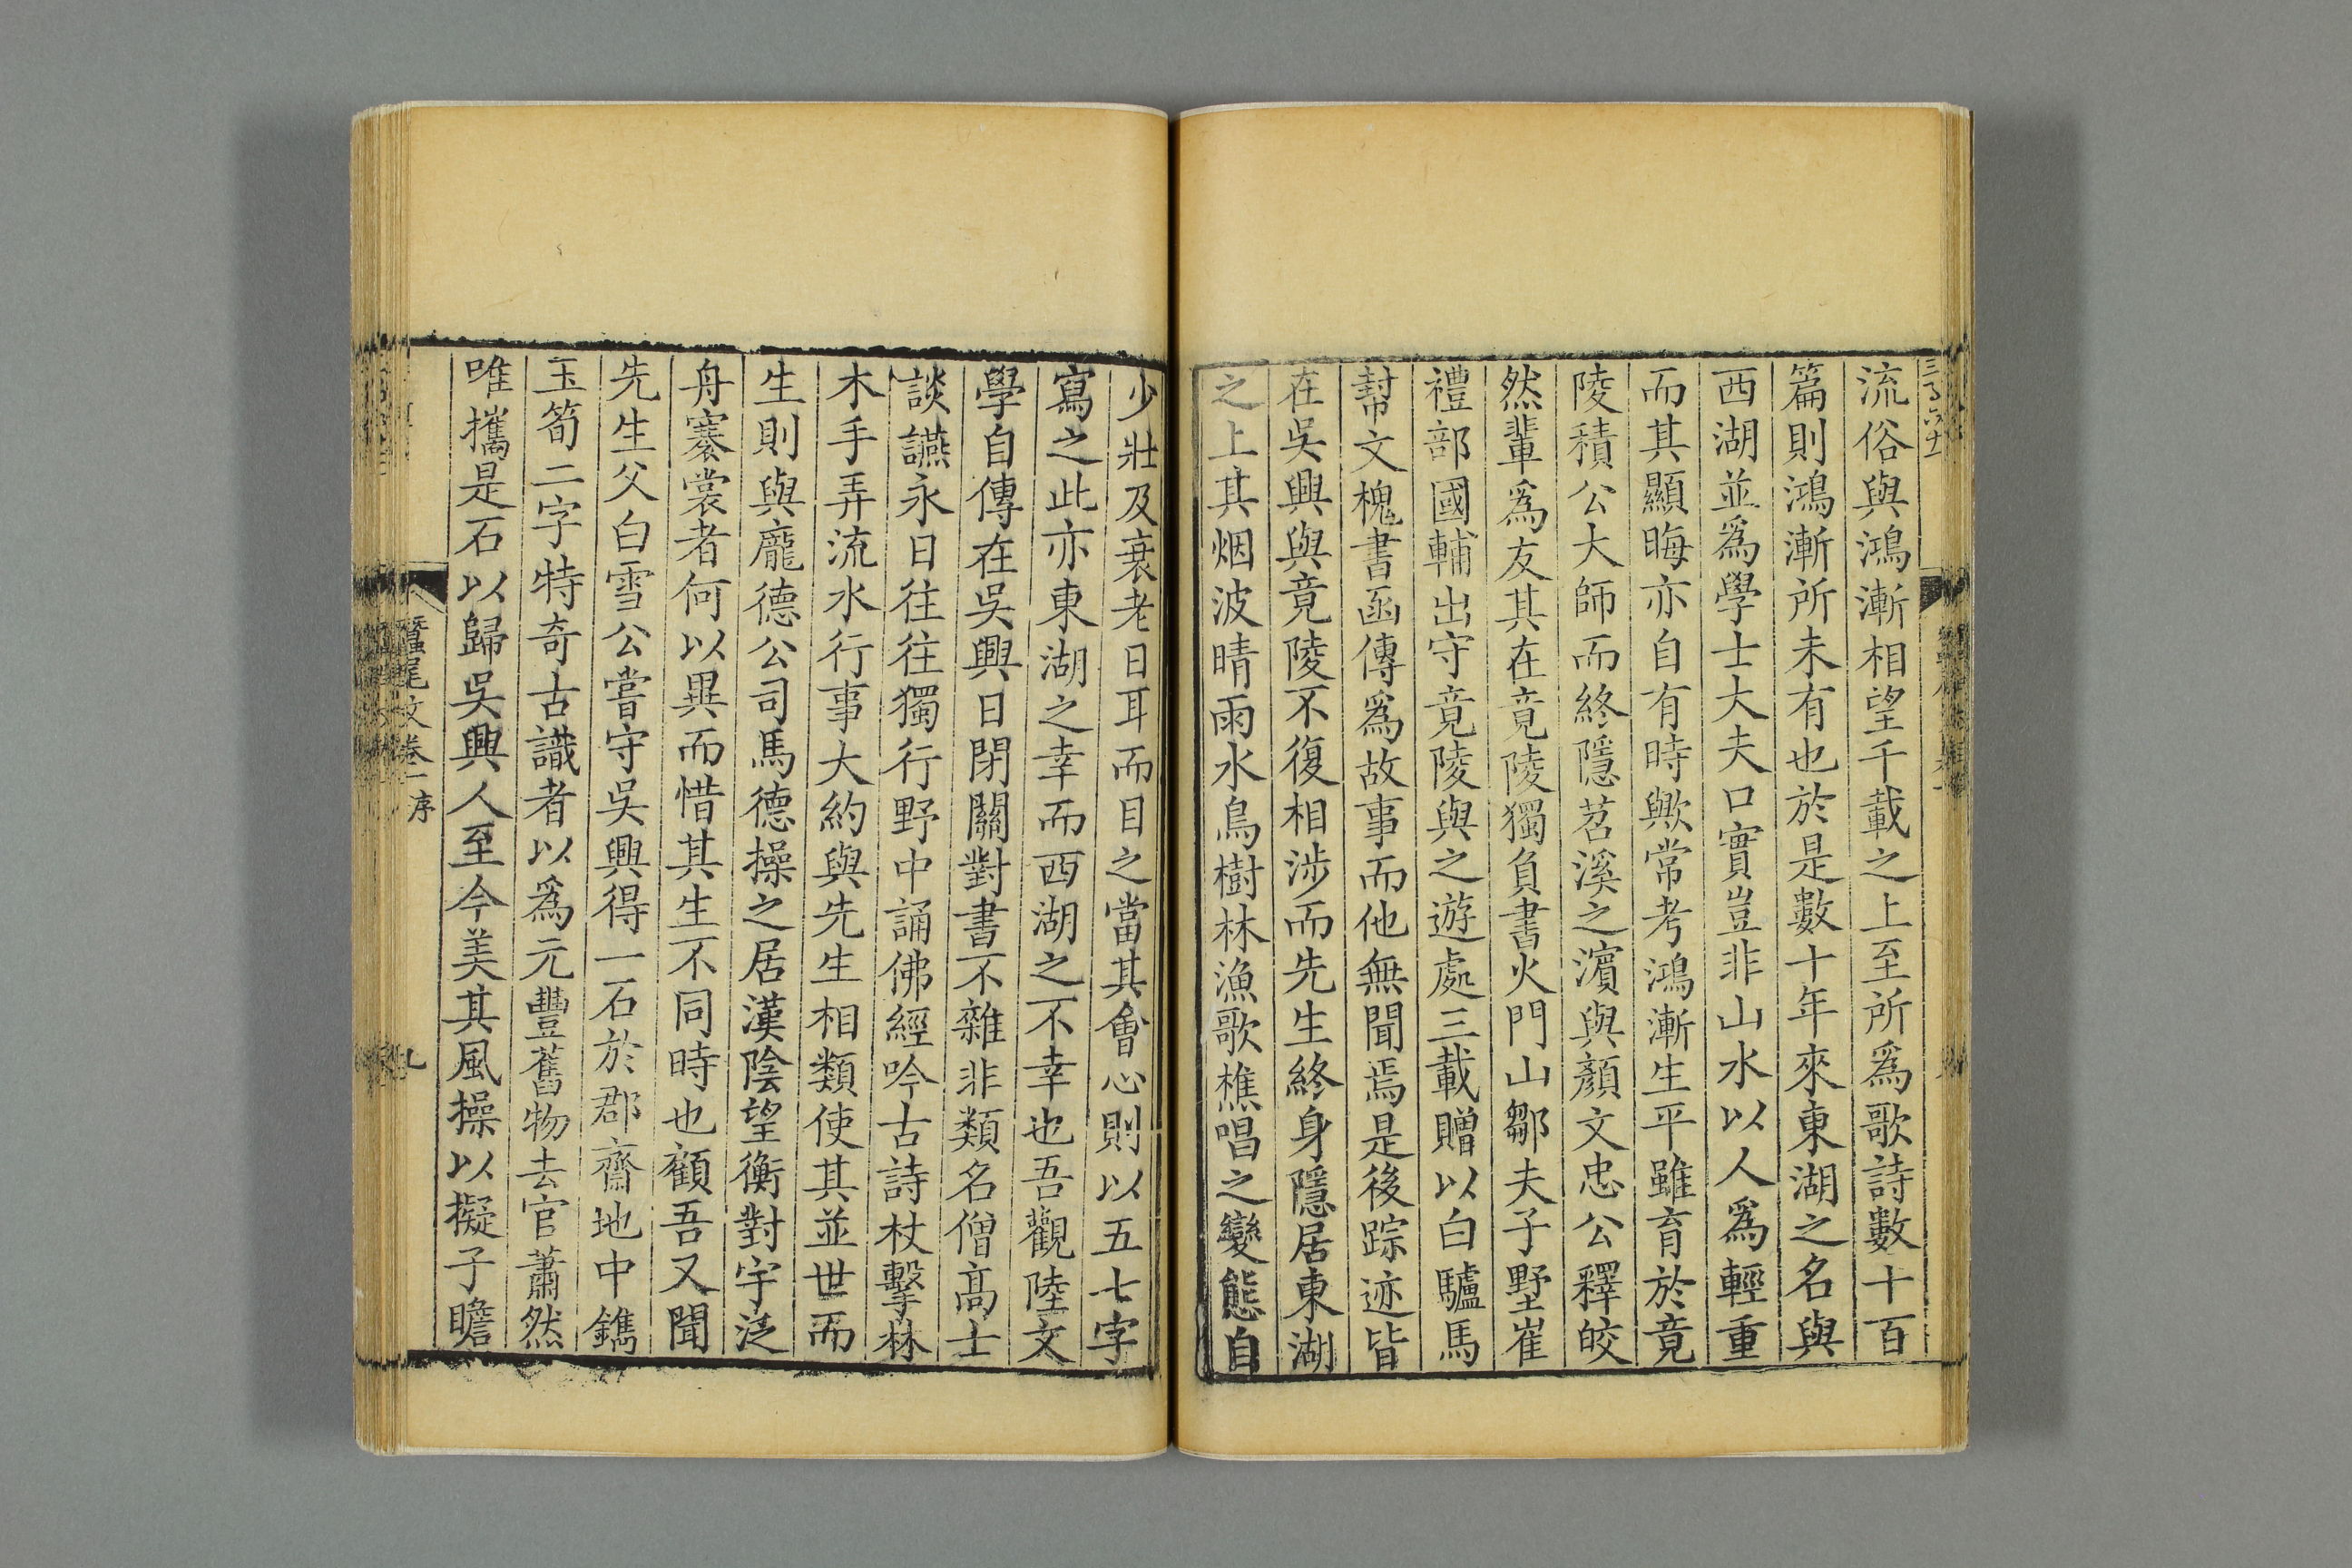 流俗與鴻漸相望千載之上至所爲歌詩數十百
篇則鴻漸所未有也於是數十年來東湖之名與
西湖並爲學士大夫口實豈非山水以人爲輕重
而其顯晦亦自有時歟常考鴻漸生平雖育於竟
陵積公大師而終隱苕溪之濵與顏文忠公釋皎
然輩爲友其在竟陵獨負書火門山鄒夫子墅崔
禮部國輔出守竟陵與之遊處三載贈以白驢馬
幇文槐書函傳爲故事而他無聞焉是後踪迹皆
在吳興與竟陵不復相涉而先生終身隱居東湖
之上其烟波晴雨水鳥樹林漁歌樵唱之變態自
少壯及衰老日耳而目之當其會心則以五七字
寫之此亦東湖之幸而西湖之不幸也吾觀陸文
學自傳在吳興日閉關對書不雜非類名僧高士
談讌永日往往獨行野中誦佛經吟古詩杖擊林
木手弄流水行事大約與先生相類使其並世而
生則與龐德公司馬德操之居漢陰望衡對宇泛
舟褰裳者何以異而惜其生不同時也顧吾又聞
先生父白雪公嘗守吳興得一石於郡齋地中鐫
玉筍二字特奇古識者以爲元豐舊物去官蕭然
唯攜是石以歸吳興人至今美其風操以擬子瞻
蠶尾文卷一序
九